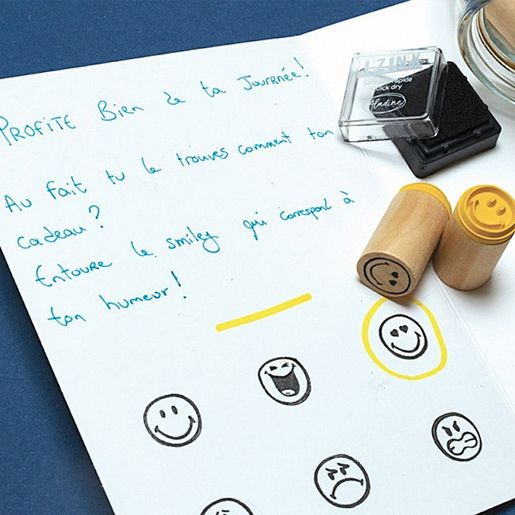 PROFITE Bien de ta Journée!
Au fait tu le trouves comment ton
cadeau?
Entoure le smiley qui correspond à
ton humeur!
IZINK
Aladine